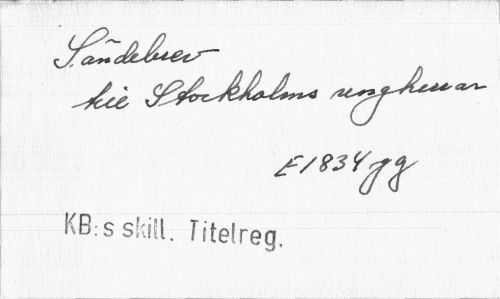 Sändebrev
till Stockholms ungherrar
E1834gg
KB:s skill. Titelreg.